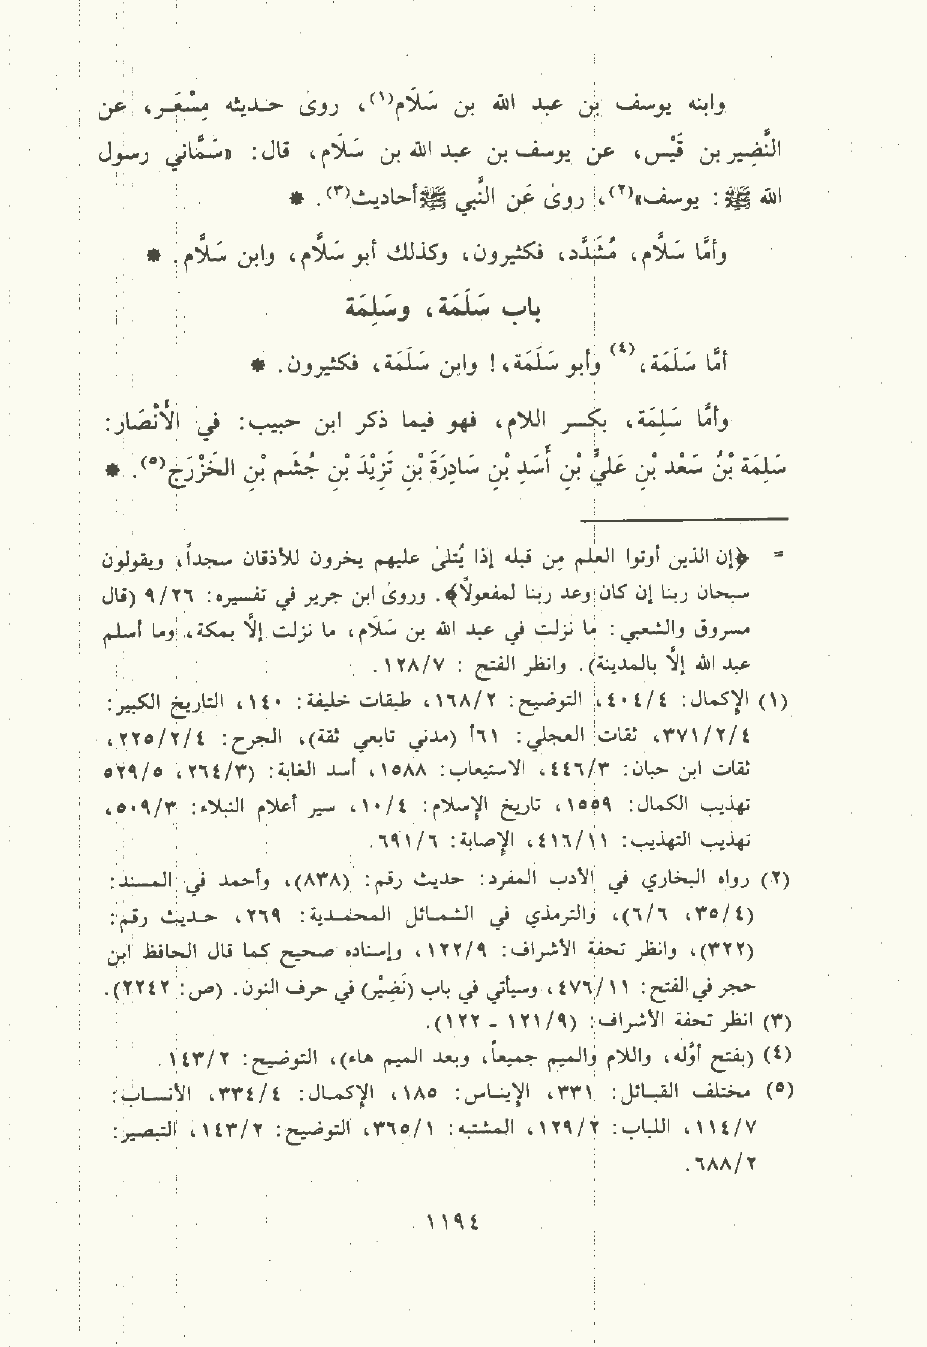 وابنه يوسف بن عبد الله بن سَلَام(١)، روى حديثه مِسْعَر، عن
النَّضِير بن قَيْس، عن يوسف بن عبد الله بن سَلَام، قال: «سَمَّاني رسول
الله ﷺ: يوسف»(٢)، روىٰ عَن النَّبي ﷺ أحاديث(٣). *
وأمَّا سَلَّام، مُشَدَّد، فكثيرون، وكذلك أبو سَلَّام، وابن سَلَّام. *
باب سَلَمَة، وسَلِمَة
أمَّا سَلَمَة،(٤) وأبو سَلَمَة،! وابن سَلَمَة، فكثيرون. *
وأمَّا سَلِمَة، بكسر اللام، فهو فيما ذكر ابن حبيب: في الأَنْصَار:
سَلِمَة بْنُ سَعْد بْنِ عَليِّ بْنِ أَسَدِ بْنِ سَادِرَةَ بْنِ تَزِيْدَ بْنِ جُشَم بْنِ الخَزْرَج(٥). *
= ﴿إن الذين أوتوا العلم مِن قبله إذا يُتْلىٰ عليهم يخرون للأذقان سجداً، ويقولون
سبحان ربنا إن كان وعد ربنا لمفعولاً﴾. وروىٰ ابن جرير في تفسيره: ٩/٢٦ (قال
مسروق والشعبي: ما نزلت في عبد الله بن سَلَام، ما نزلت إلَّا بمكة، وما أسلم
عبد الله إلَّا بالمدينة). وانظر الفتح: ١٢٨/٧.
(١) الإكمال: ٤٠٤/٤، التوضيح: ١٦٨/٢، طبقات خليفة: ١٤٠، التاريخ الكبير:
٣٧١/٢/٤، ثقات العجلي: ٦١أ (مدني تابعي ثقة)، الجرح: ٢٢٥/٢/٤،
ثقات ابن حبان: ٤٤٦/٣، الاستيعاب: ١٥٨٨، أسد الغابة: (٢٦٤/٣، ٥٢٩/٥
تهذيب الكمال: ١٥٥٩، تاريخ الإسلام: ١٠/٤، سير أعلام النبلاء: ٥٠٩/٣،
تهذيب التهذيب: ٤١٦/١١، الإصابة: ٦٩١/٦.
(٢) رواه البخاري في الأدب المفرد: حديث رقم: (٨٣٨)، وأحمد في المسند:
(٣٥/٤، ٦/٦)، والترمذي في الشمائل المحمدية: ٢٦٩، حديث رقم:
(٣٢٢)، وانظر تحفة الأشراف: ١٢٢/٩، وإسناده صحيح كما قال الحافظ ابن
حجر في الفتح: ٤٧٦/١١، وسيأتي في باب (نَضِيْر) في حرف النون. (ص: ٢٢٤٢).
(٣) انظر تحفة الأشراف: (١٢١/٩ - ١٢٢).
(٤) (بفتح أوَّله، واللام والميم جميعاً، وبعد الميم هاء)، التوضيح: ١٤٣/٢.
(٥) مختلف القبائل: ٣٣١، الإيناس: ١٨٥، الإكمال: ٣٣٤/٤، الأنساب:
١١٤/٧، اللباب: ١٢٩/٢، المشتبه: ٣٦٥/١، التوضيح: ١٤٣/٢، التبصير:
٦٨٨/٢.
١١٩٤